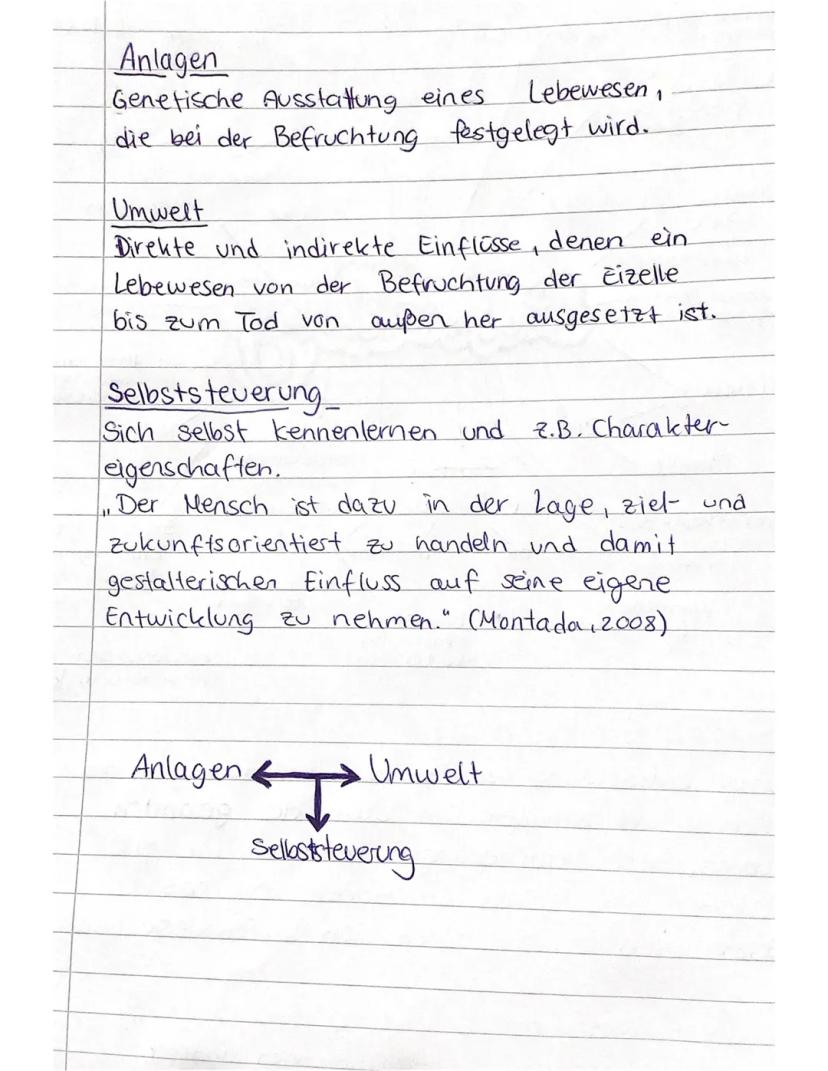 Anlagen
Genetische Ausstattung eines Lebewesen,
die bei der Befruchtung festgelegt wird.
Umwelt
Direkte und indirekte Einflüsse, denen ein
Lebewesen von der Befruchtung der Eizelle
bis zum Tod von außen her ausgesetzt ist.
Selbststeuerung
Sich selbst kennenlernen und z.B. Charakter-
eigenschaften.
„Der Mensch ist dazu in der Lage, ziel- und
zukunftsorientiert zu handeln und damit
gestalterischen Einfluss auf seine eigene
Entwicklung zu nehmen." (Montada, 2008)
Anlagen ↔ Umwelt
Selbststeuerung